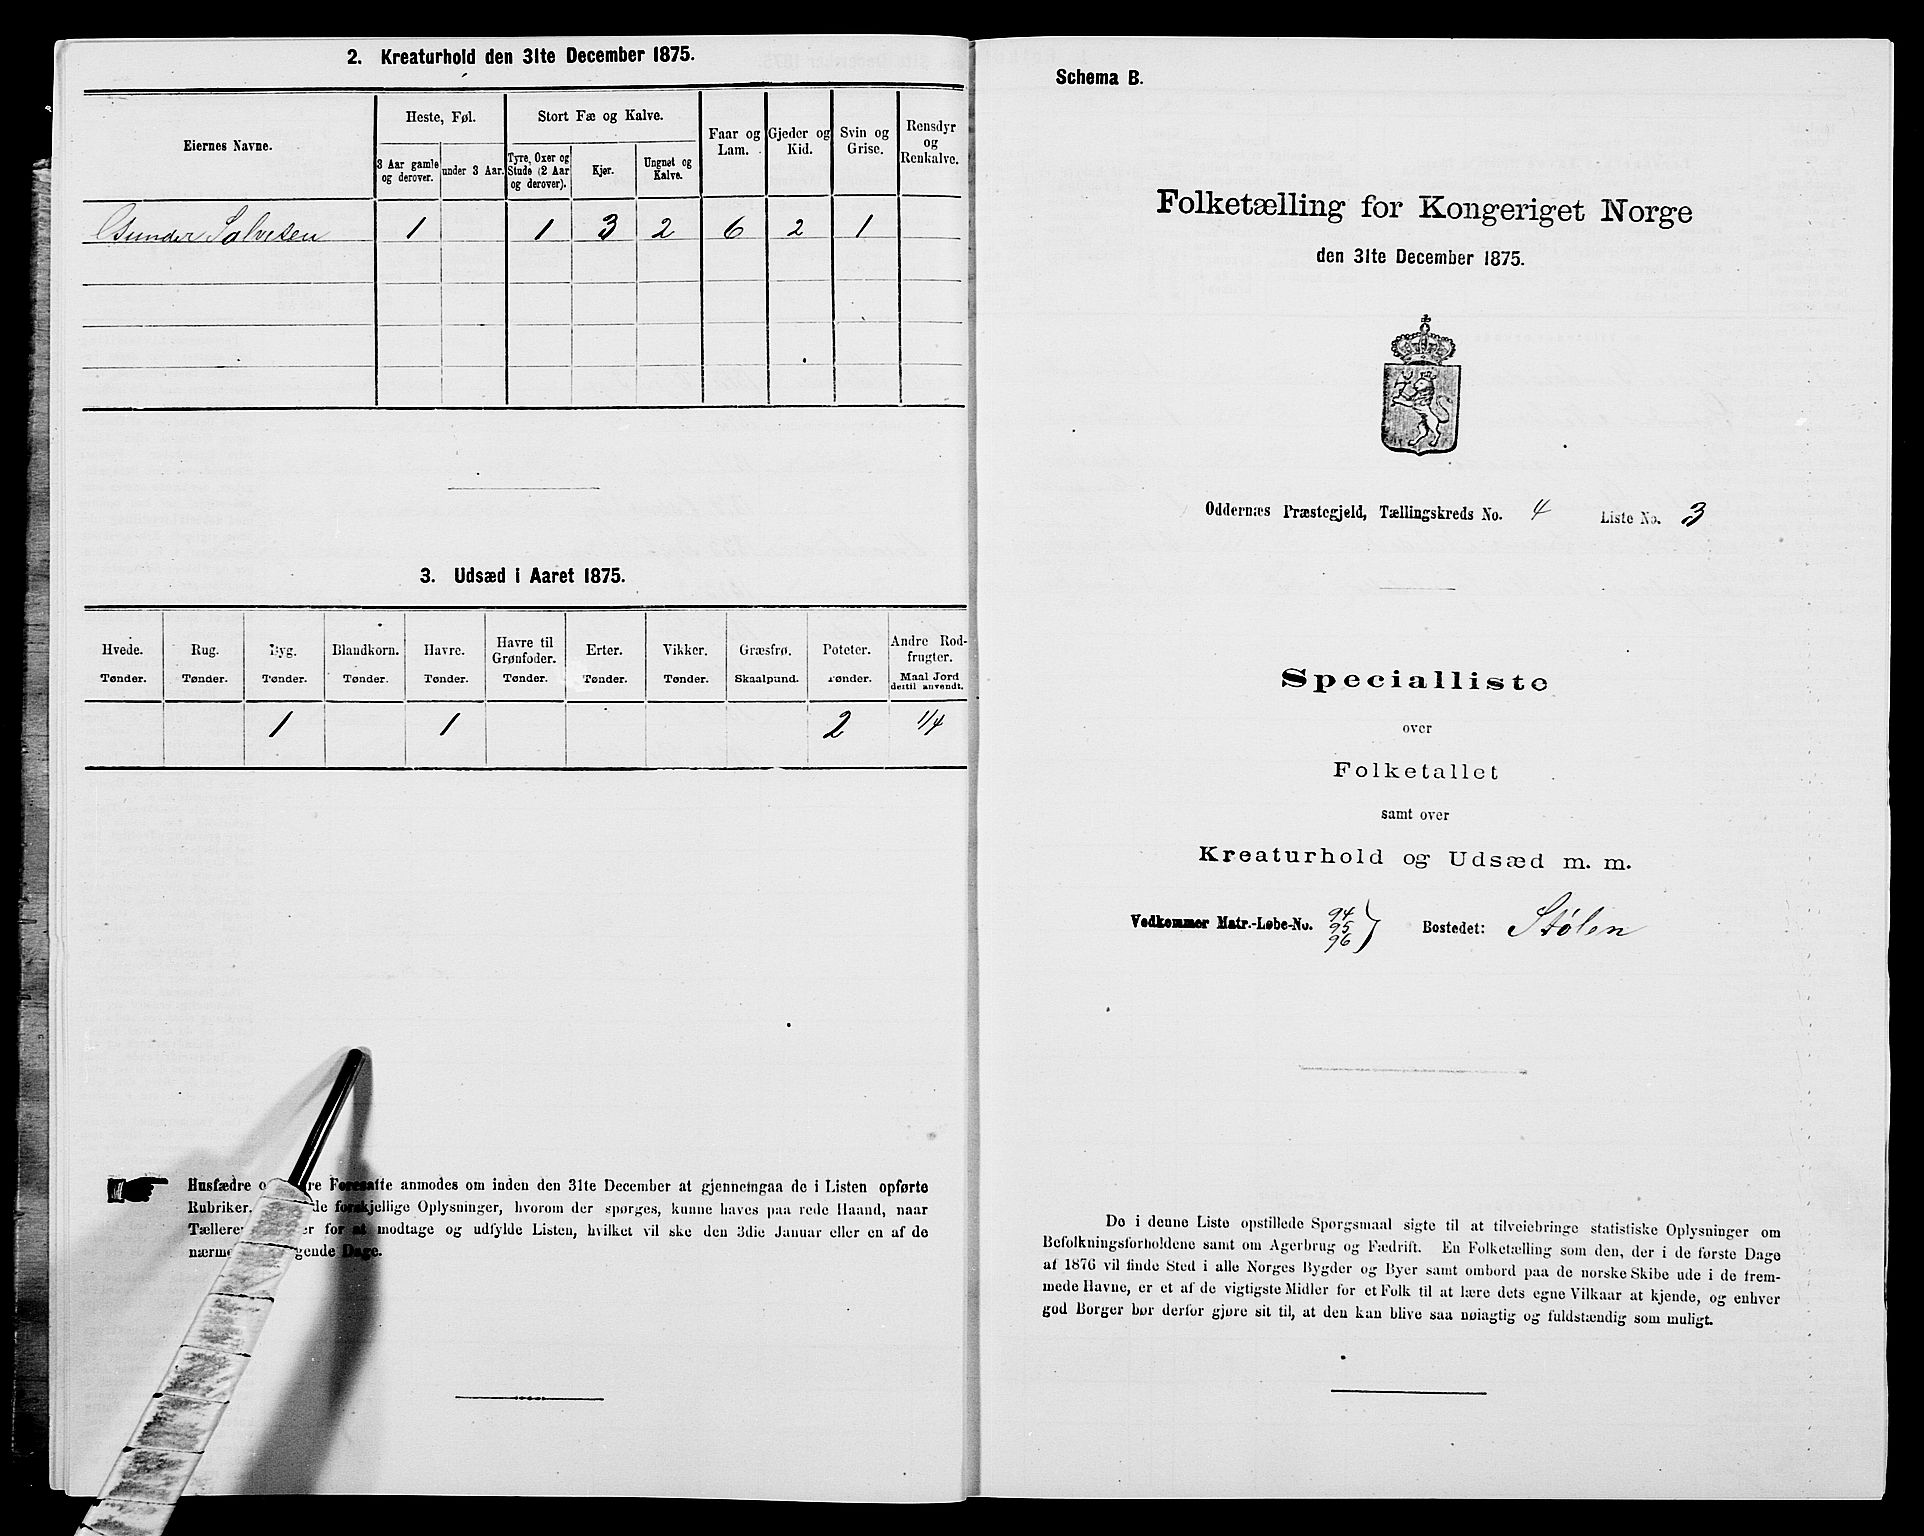 2. Kreaturhold den 31te December 1875.
Eiernes Navne.
Heste, Føl.
Stort Fæ og Kalve.
Faar og Lam.
Gjeder og Kid.
Svin og Grise.
Rensdyr og Renkalve.
3 Aar gamle og derover.
under 3 Aar.
Tyre, Oxer og Stude (2 Aar og derover).
Kjør.
Ungnøt og Kalve.
Gunder Salvesen 1 1 3 2 6 2 1
3. Udsæd i Aaret 1875.
Hvede. Rug. Byg. Blandkorn. Havre. Havre til Grønfoder. Erter. Vikker. Græsfrø. Poteter. Andre Rodfrugter.
Tønder. Tønder. Tønder. Tønder. Tønder. Tønder. Tønder. Tønder. Skaalpund. Tønder. Maal Jord dertil anvendt.
1 1 2 1/4
Husfædre o re Foresatte anmodes om inden den 31te December at gjennemgaa de i Listen opførte
Rubriker. de forskjellige Oplysninger, hvorom der spørges, kunne haves paa rede Haand, naar
Tælleren er for at modtage og udfylde Listen, hvilket vil ske den 3die Januar eller en af de
nærme gende Dage.
Schema B.
Folketælling for Kongeriget Norge
den 31te December 1875.
Oddernæs Præstegjeld, Tællingskreds No. 4 Liste No. 3
Specialliste
over
Folketallet
samt over
Kreaturhold og Udsæd m. m.
Vedkommer Matr.-Løbe-No. 94 95 96 } Bostedet: Stølen
De i denne Liste opstillede Spørgsmaal sigte til at tilveiebringe statistiske Oplysninger om
Befolkningsforholdene samt om Agerbrug og Fædrift. En Folketælling som den, der i de første Dage
af 1876 vil finde Sted i alle Norges Bygder og Byer samt ombord paa de norske Skibe ude i de frem-
mede Havne, er et af de vigtigste Midler for et Folk til at lære dets egne Vilkaar at kjende, og enhver
god Borger bør derfor gjøre sit til, at den kan blive saa nøiagtig og fuldstændig som muligt.